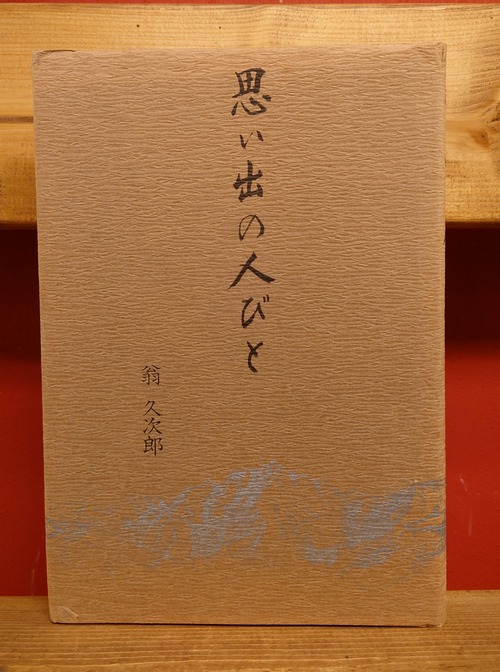 思い出の人びと
翁 久次郎